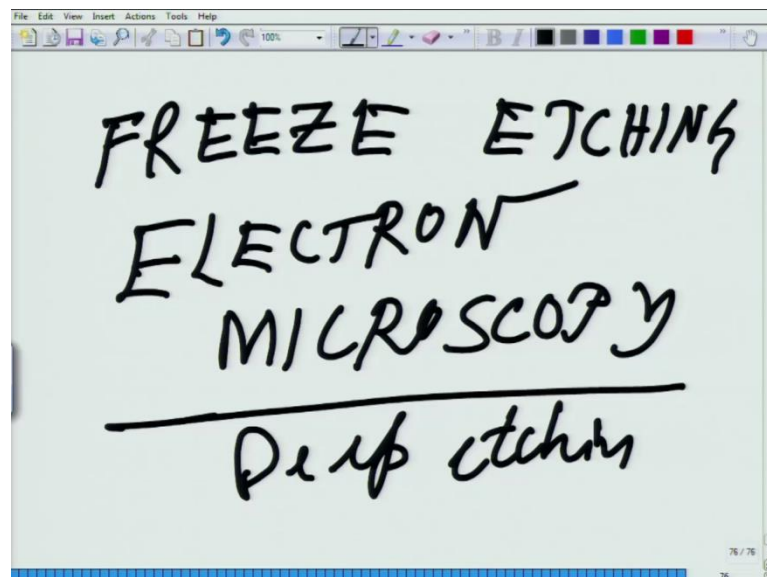 File Edit View Insert Actions Tools Help
100% B I
FREEZE ETCHING
ELECTRON
MICROSCOPY
Deep etchin
76 / 76
76